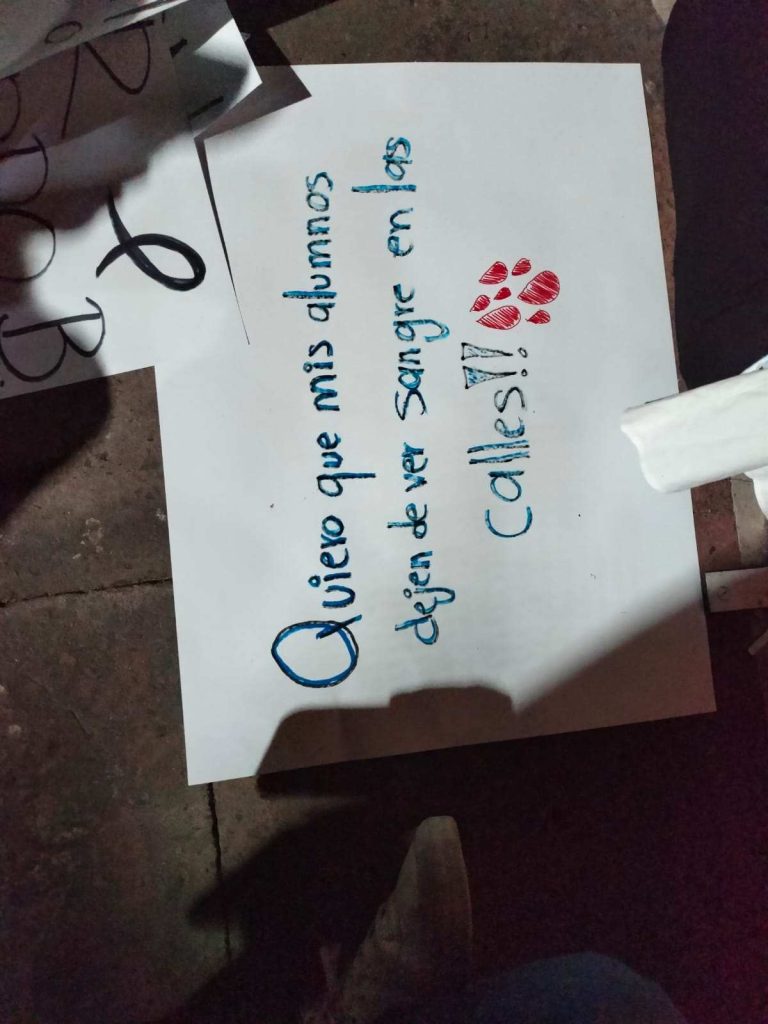 Quiero que mis alumnos
dejen de ver sangre en las
calles!!